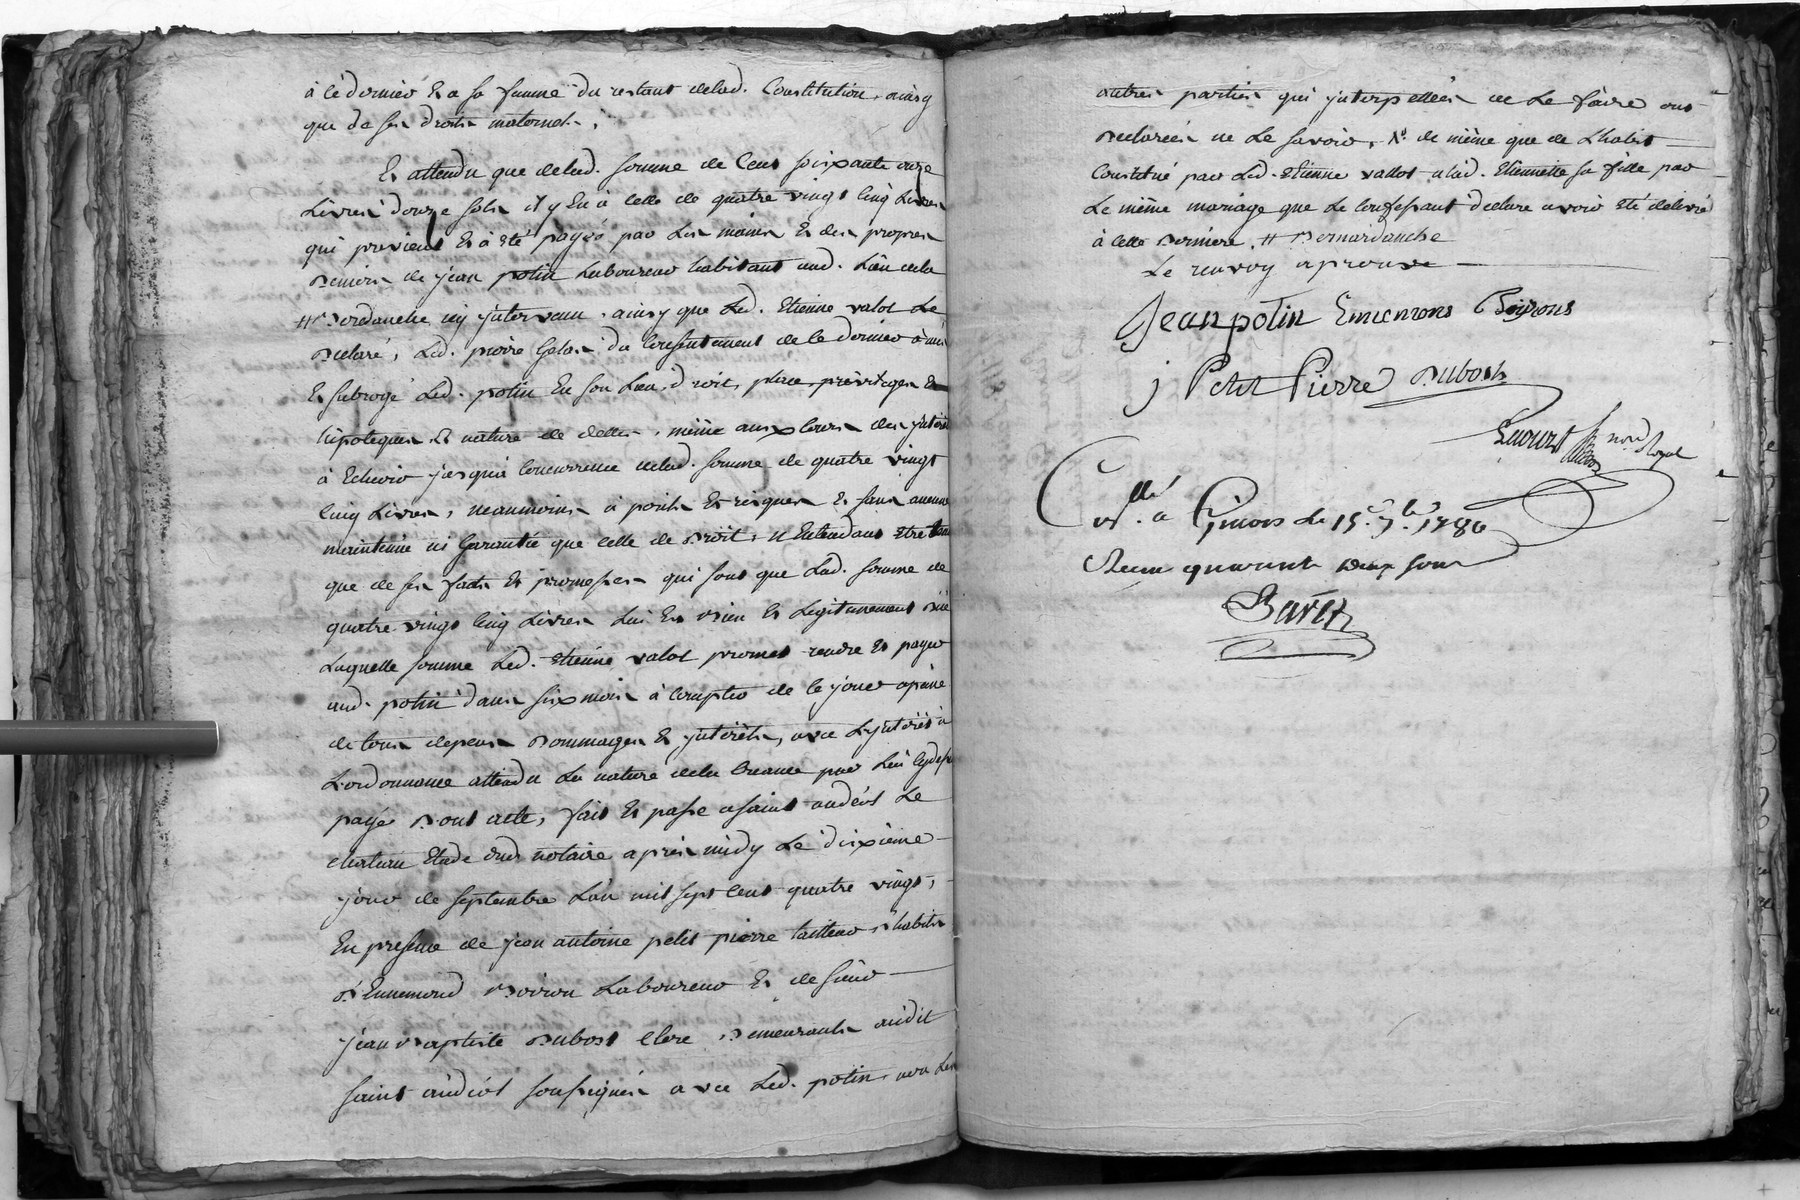 à ce dernier et a sa femme du restant delad. Constitution, ainsy
que de ses droits maternels.
Et attendu que delad. somme de Cent soixante onze
Livres douze sols il y En à celle de quatre vingt Cinq Livres
qui provient Et à été payée par Les mains Et des propres
Deniers de jean potin Laboureur habitant aud. Lieu dela
# Berdanche icy intervenu, ainsy que Led. Etienne valot Le
Declaré, Led. pierre Gelas du Consentement de ce dernier à mis
Et subrogé Led. potin En son Lieu, droit, place, privileges Et
hipoteques Et nature de dettes, même aux Cours des jnterêts
à Echeoir jusqu'à Concurrence delad. somme de quatre vingt
Cinq Livres, neanmoins à perils Et risques Et sans aucune
maintenüe ni Garantie que celle de Droit, N'Entendant être tenu
que de ses faits Et promesses qui sont que Lad. somme de
quatre vingt Cinq Livres Lui Est bien Et Legitimement Düe
Laquelle somme Led. Etienne valot promet rendre Et payer
aud. potin dans six mois à Compter de ce jour apeine
de tous depens Dommages Et jnterêts, avec L'jnterêt à
L'ordonnance attendu La nature dela Creance par Lui cydessus
payée Dont acte, fait Et passé a saint andéol Le
chateau Etude dud notaire apres midy Le dixieme
jour de septembre L'an mil sept Cent quatre vingt,
En presence de jean antoine petit pierre tailleur d'habits
D'Ennemond Boiron Laboureur Et de sieur
jean Baptiste Dubost Clerc, Demeurants audit
saint andéol soussignés avec Led. potin, non Les
autres parties qui jnterpellées de Le faire ont
Declarées ne Le savoir, Et de même que de L'habit
Constitué par Led. Etienne vallot alad. Etiennette sa fille par
Le même mariage que Le Confessant declare avoir été delivré
à cette Derniere. # Bernardanche
Le renvoy aprouvé
Jean potin Ennemons Boirons
j Petit Pierre Dubost
nore Royal
Coll. a Givors Le 15e 7bre 1780
Recu quarante deux sous